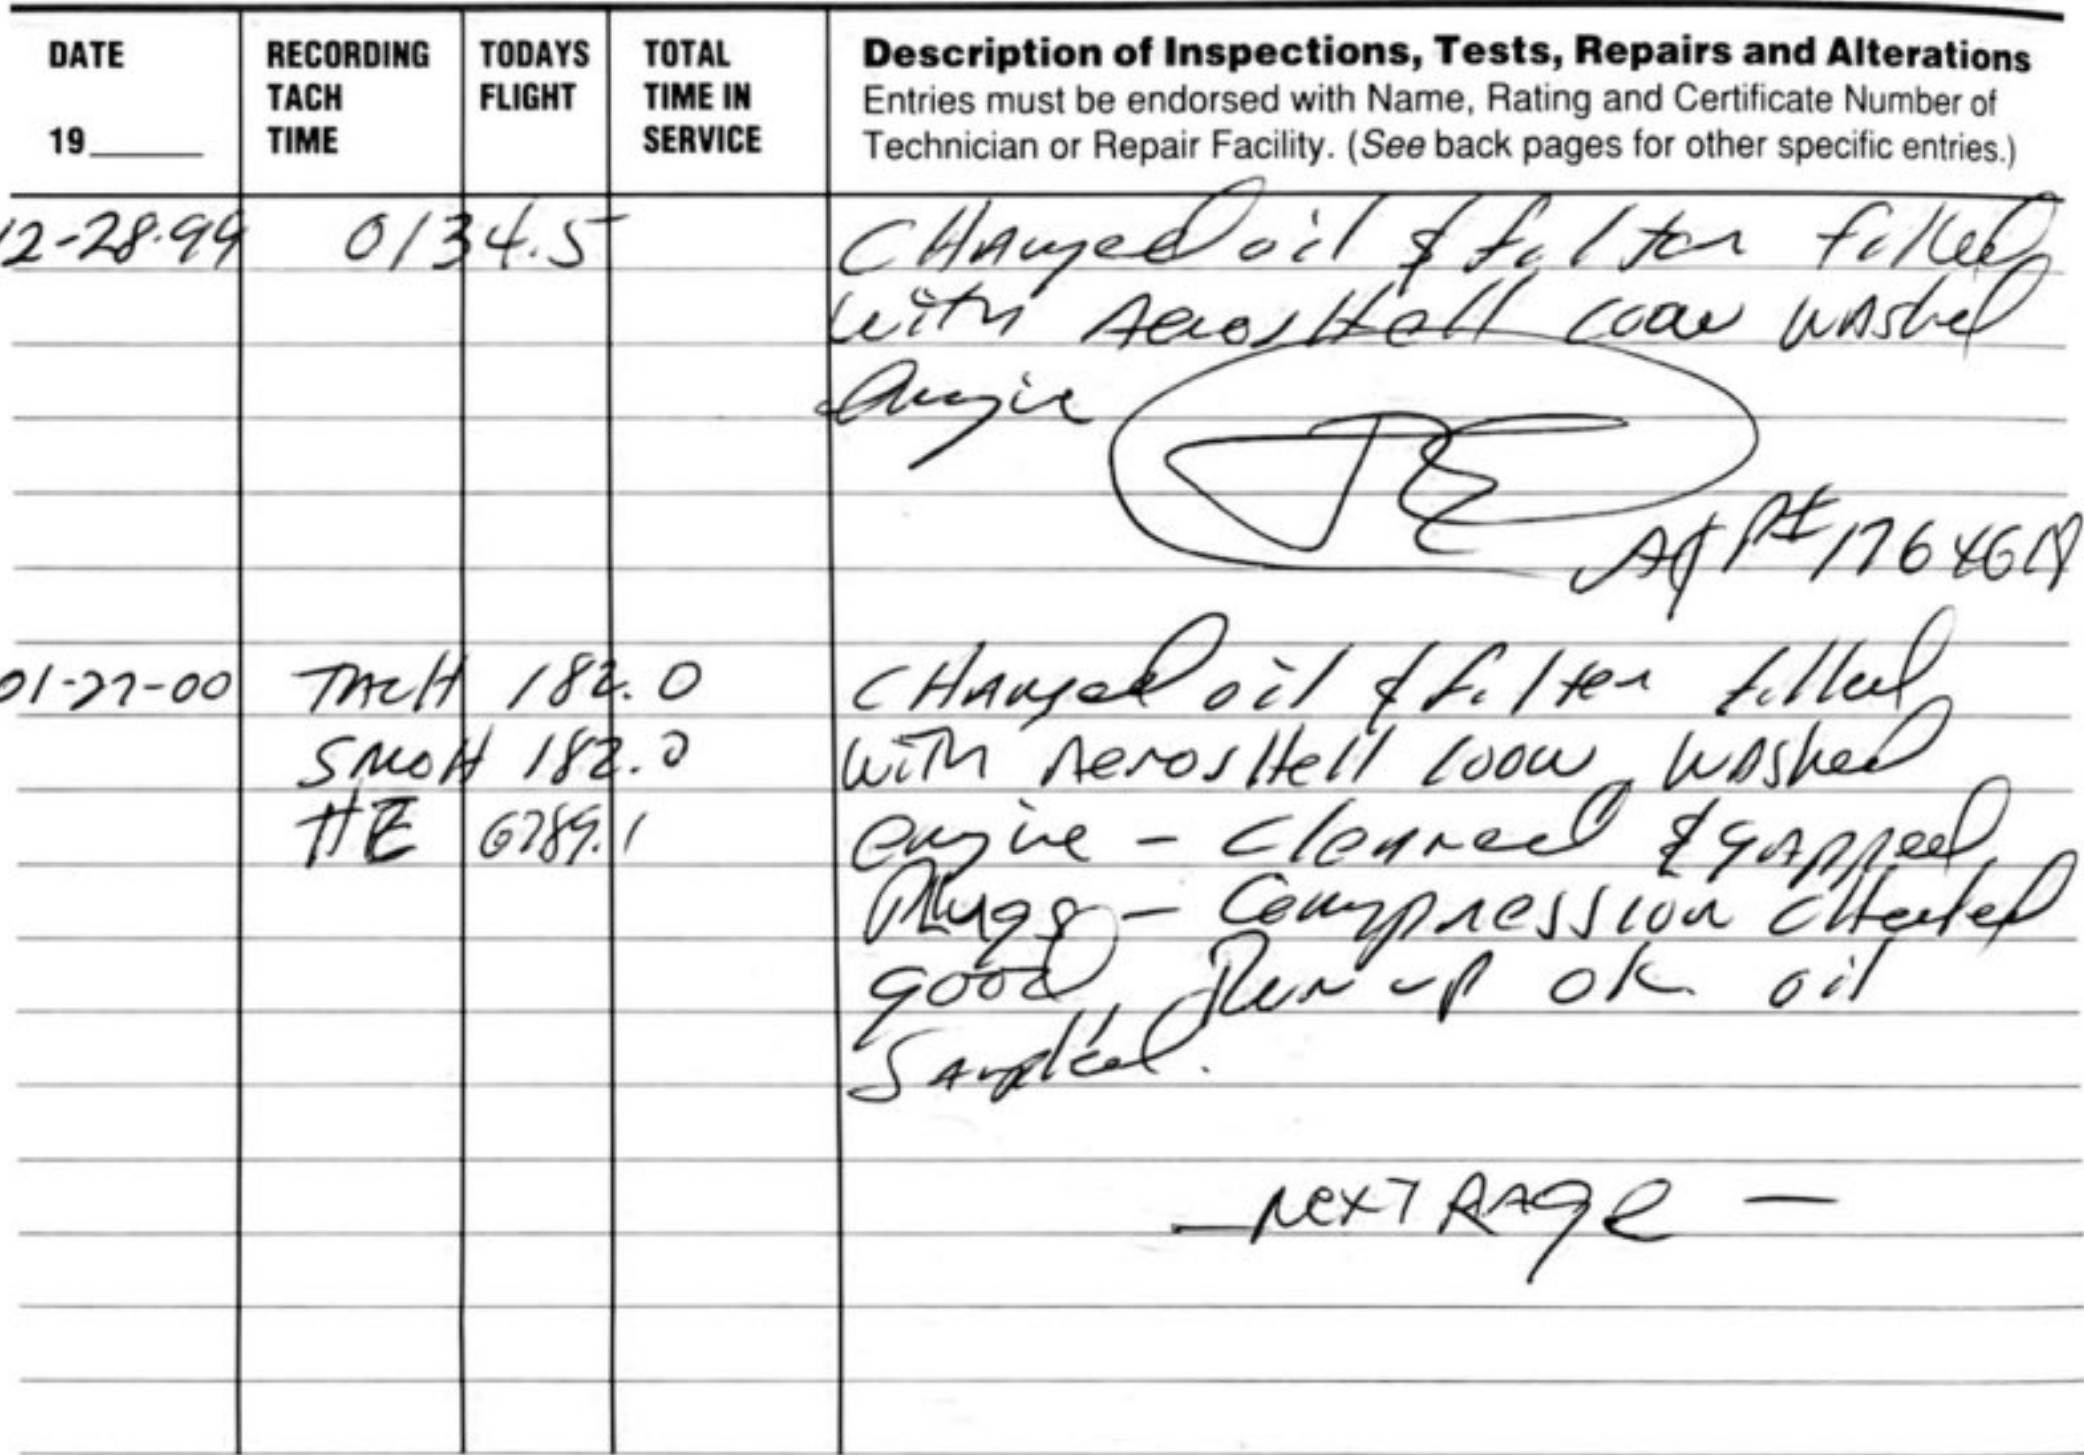 DATE
19____
RECORDING
TACH
TIME
TODAYS
FLIGHT
TOTAL
TIME IN
SERVICE
Description of Inspections, Tests, Repairs and Alterations
Entries must be endorsed with Name, Rating and Certificate Number of
Technician or Repair Facility. (See back pages for other specific entries.)
12-28-99 0134.5 CHANged oil & filter filled
with AerosHell 100W WAshed
Engine
A&P#
01-27-00 TACH 182.0 CHANged oil & filter filled
SMOH 182.0 with AerosHell 100W WAshed
6789.1 engine - cleaned & gApped
Plugs - Compression cHecked
good, Run up OK oil
SAmpled.
— NexT PAge —